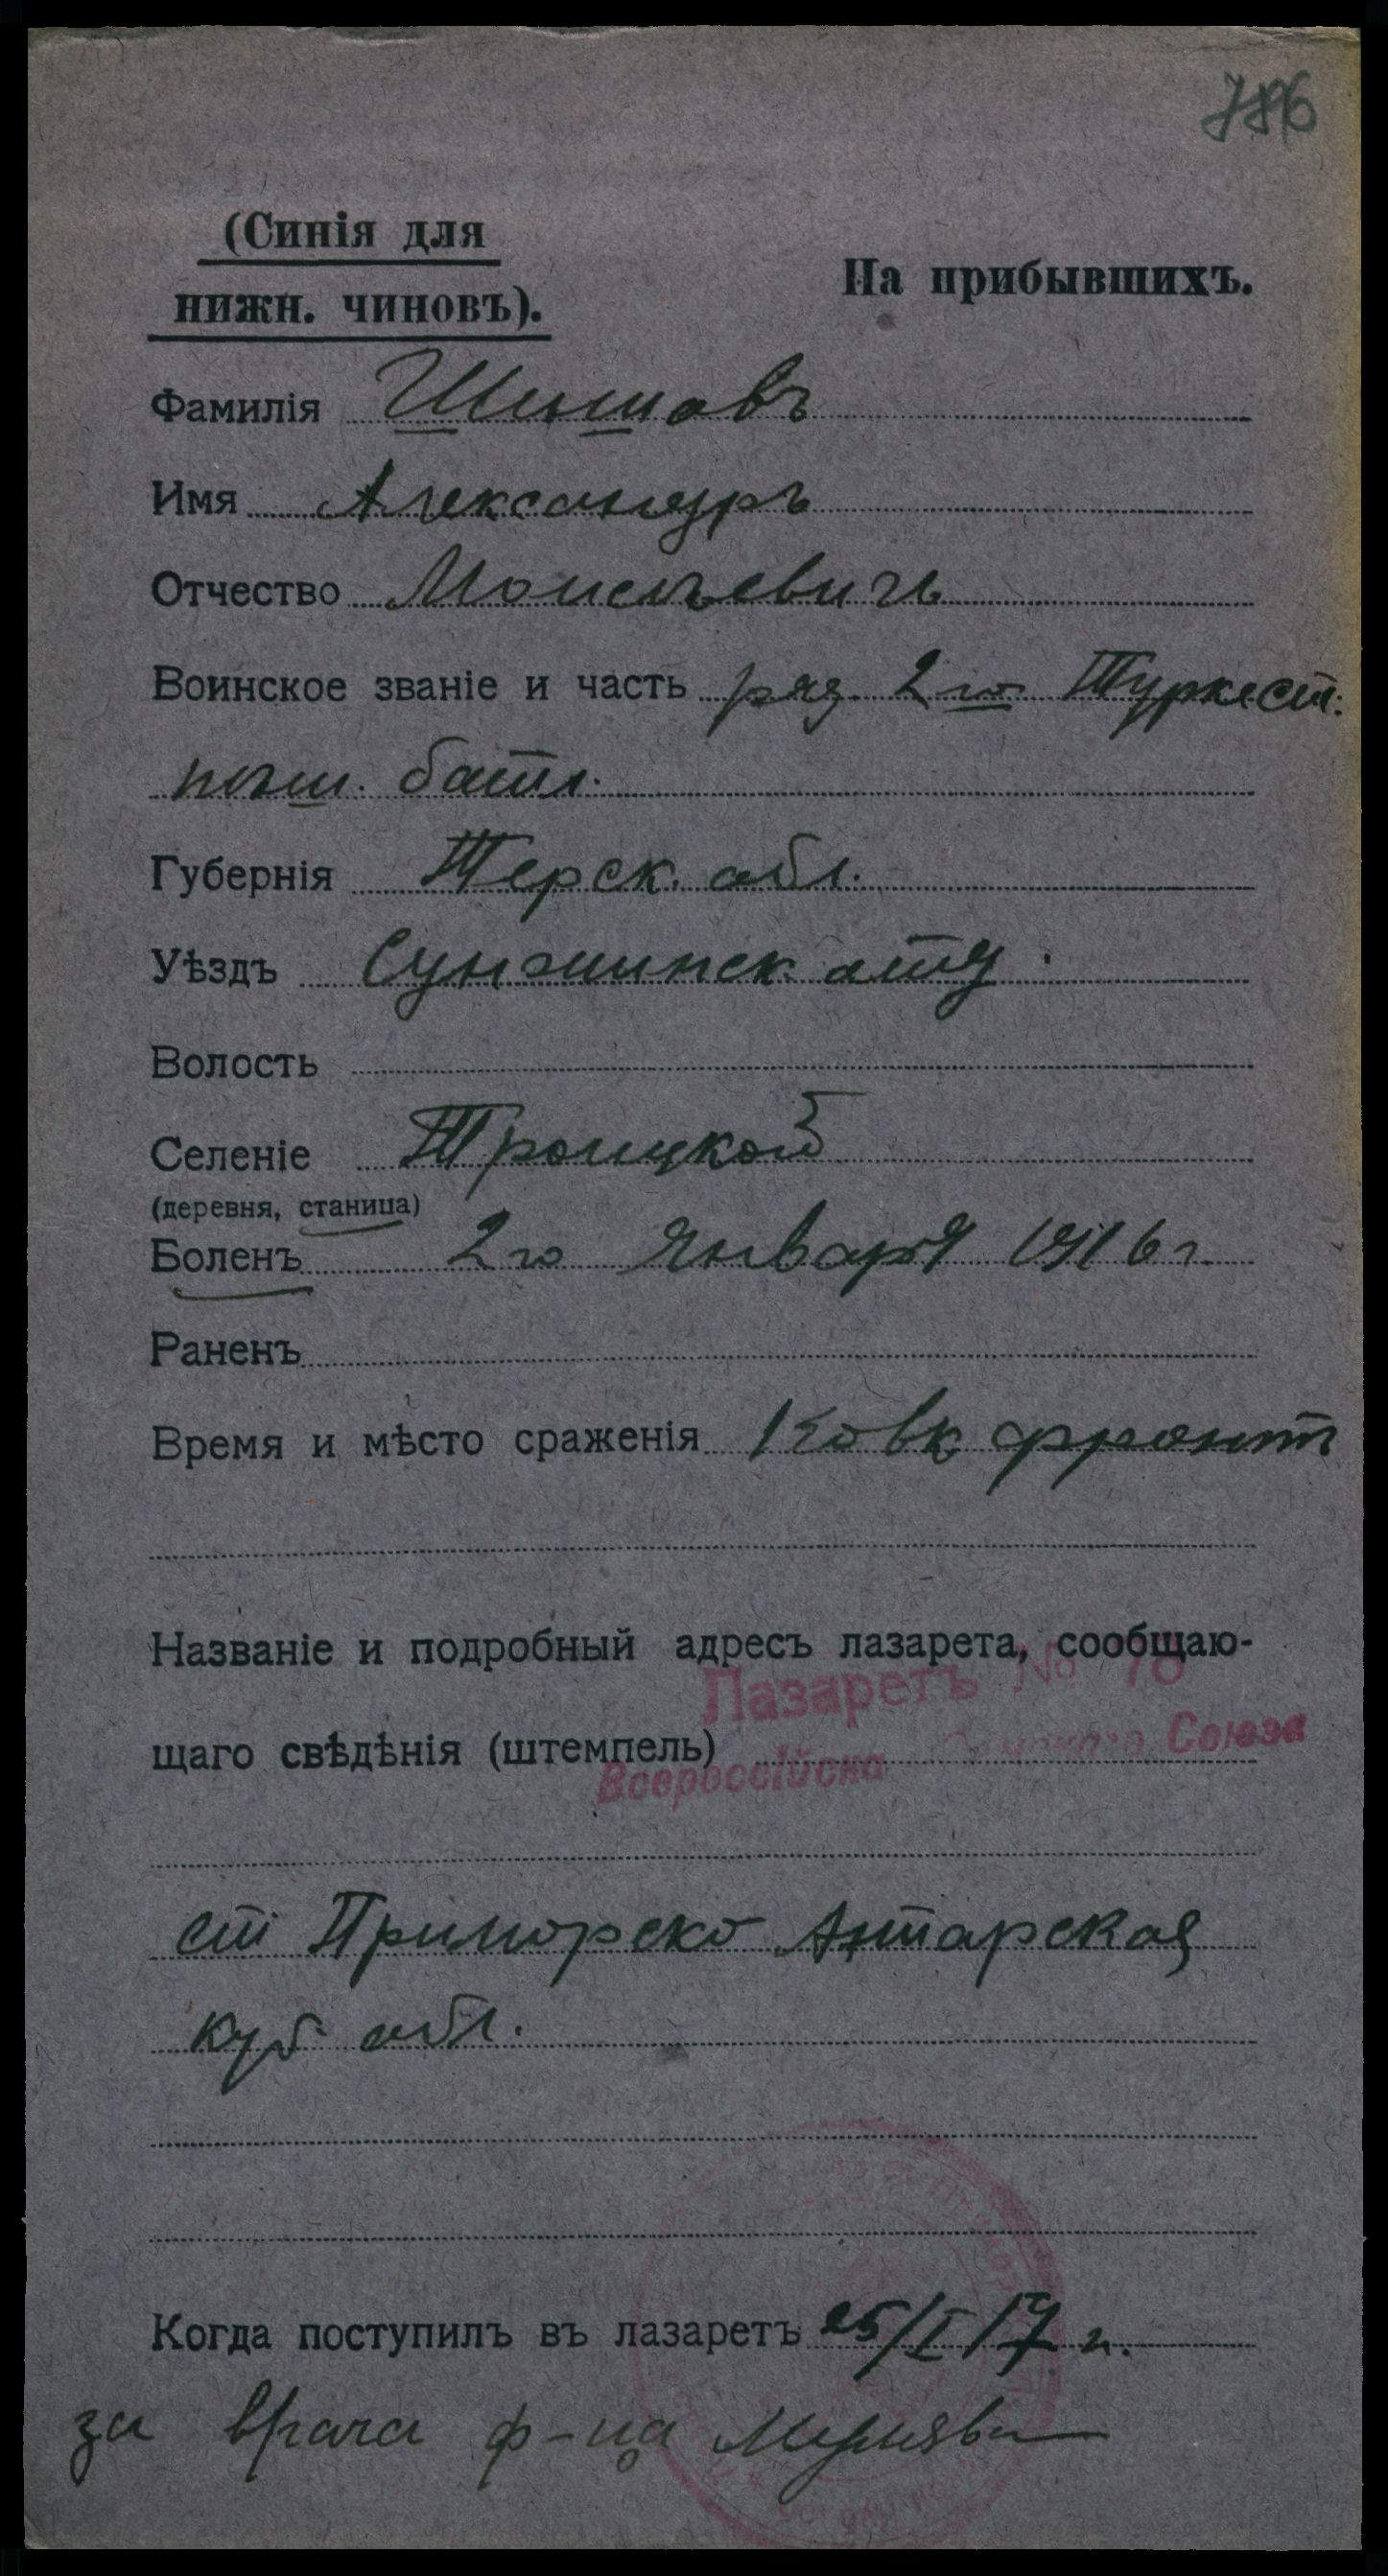 786
(Синія для
нижн. чиновъ).
На прибывшихъ.
Фамилія Шишовъ
Имя Александръ
Отчество Моисѣевичъ
Воинское званіе и часть ряд. 2го Туркест.
пѣш. батл.
Губернія Терск. обл.
Уѣздъ Сунженск. отд.
Волость
Селеніе Троицкой
(деревня, станица)
Боленъ 2го Января 1916 г.
Раненъ
Время и мѣсто сраженія Кавк фронтъ
Названіе и подробный адресъ лазарета, сообщаю-
Лазаретъ №
щаго свѣдѣнія (штемпель)
Союза
ст Приморско Ахтарская
Куб обл.
Когда поступилъ въ лазаретъ 25/I/17 г.
за врача ф-ца